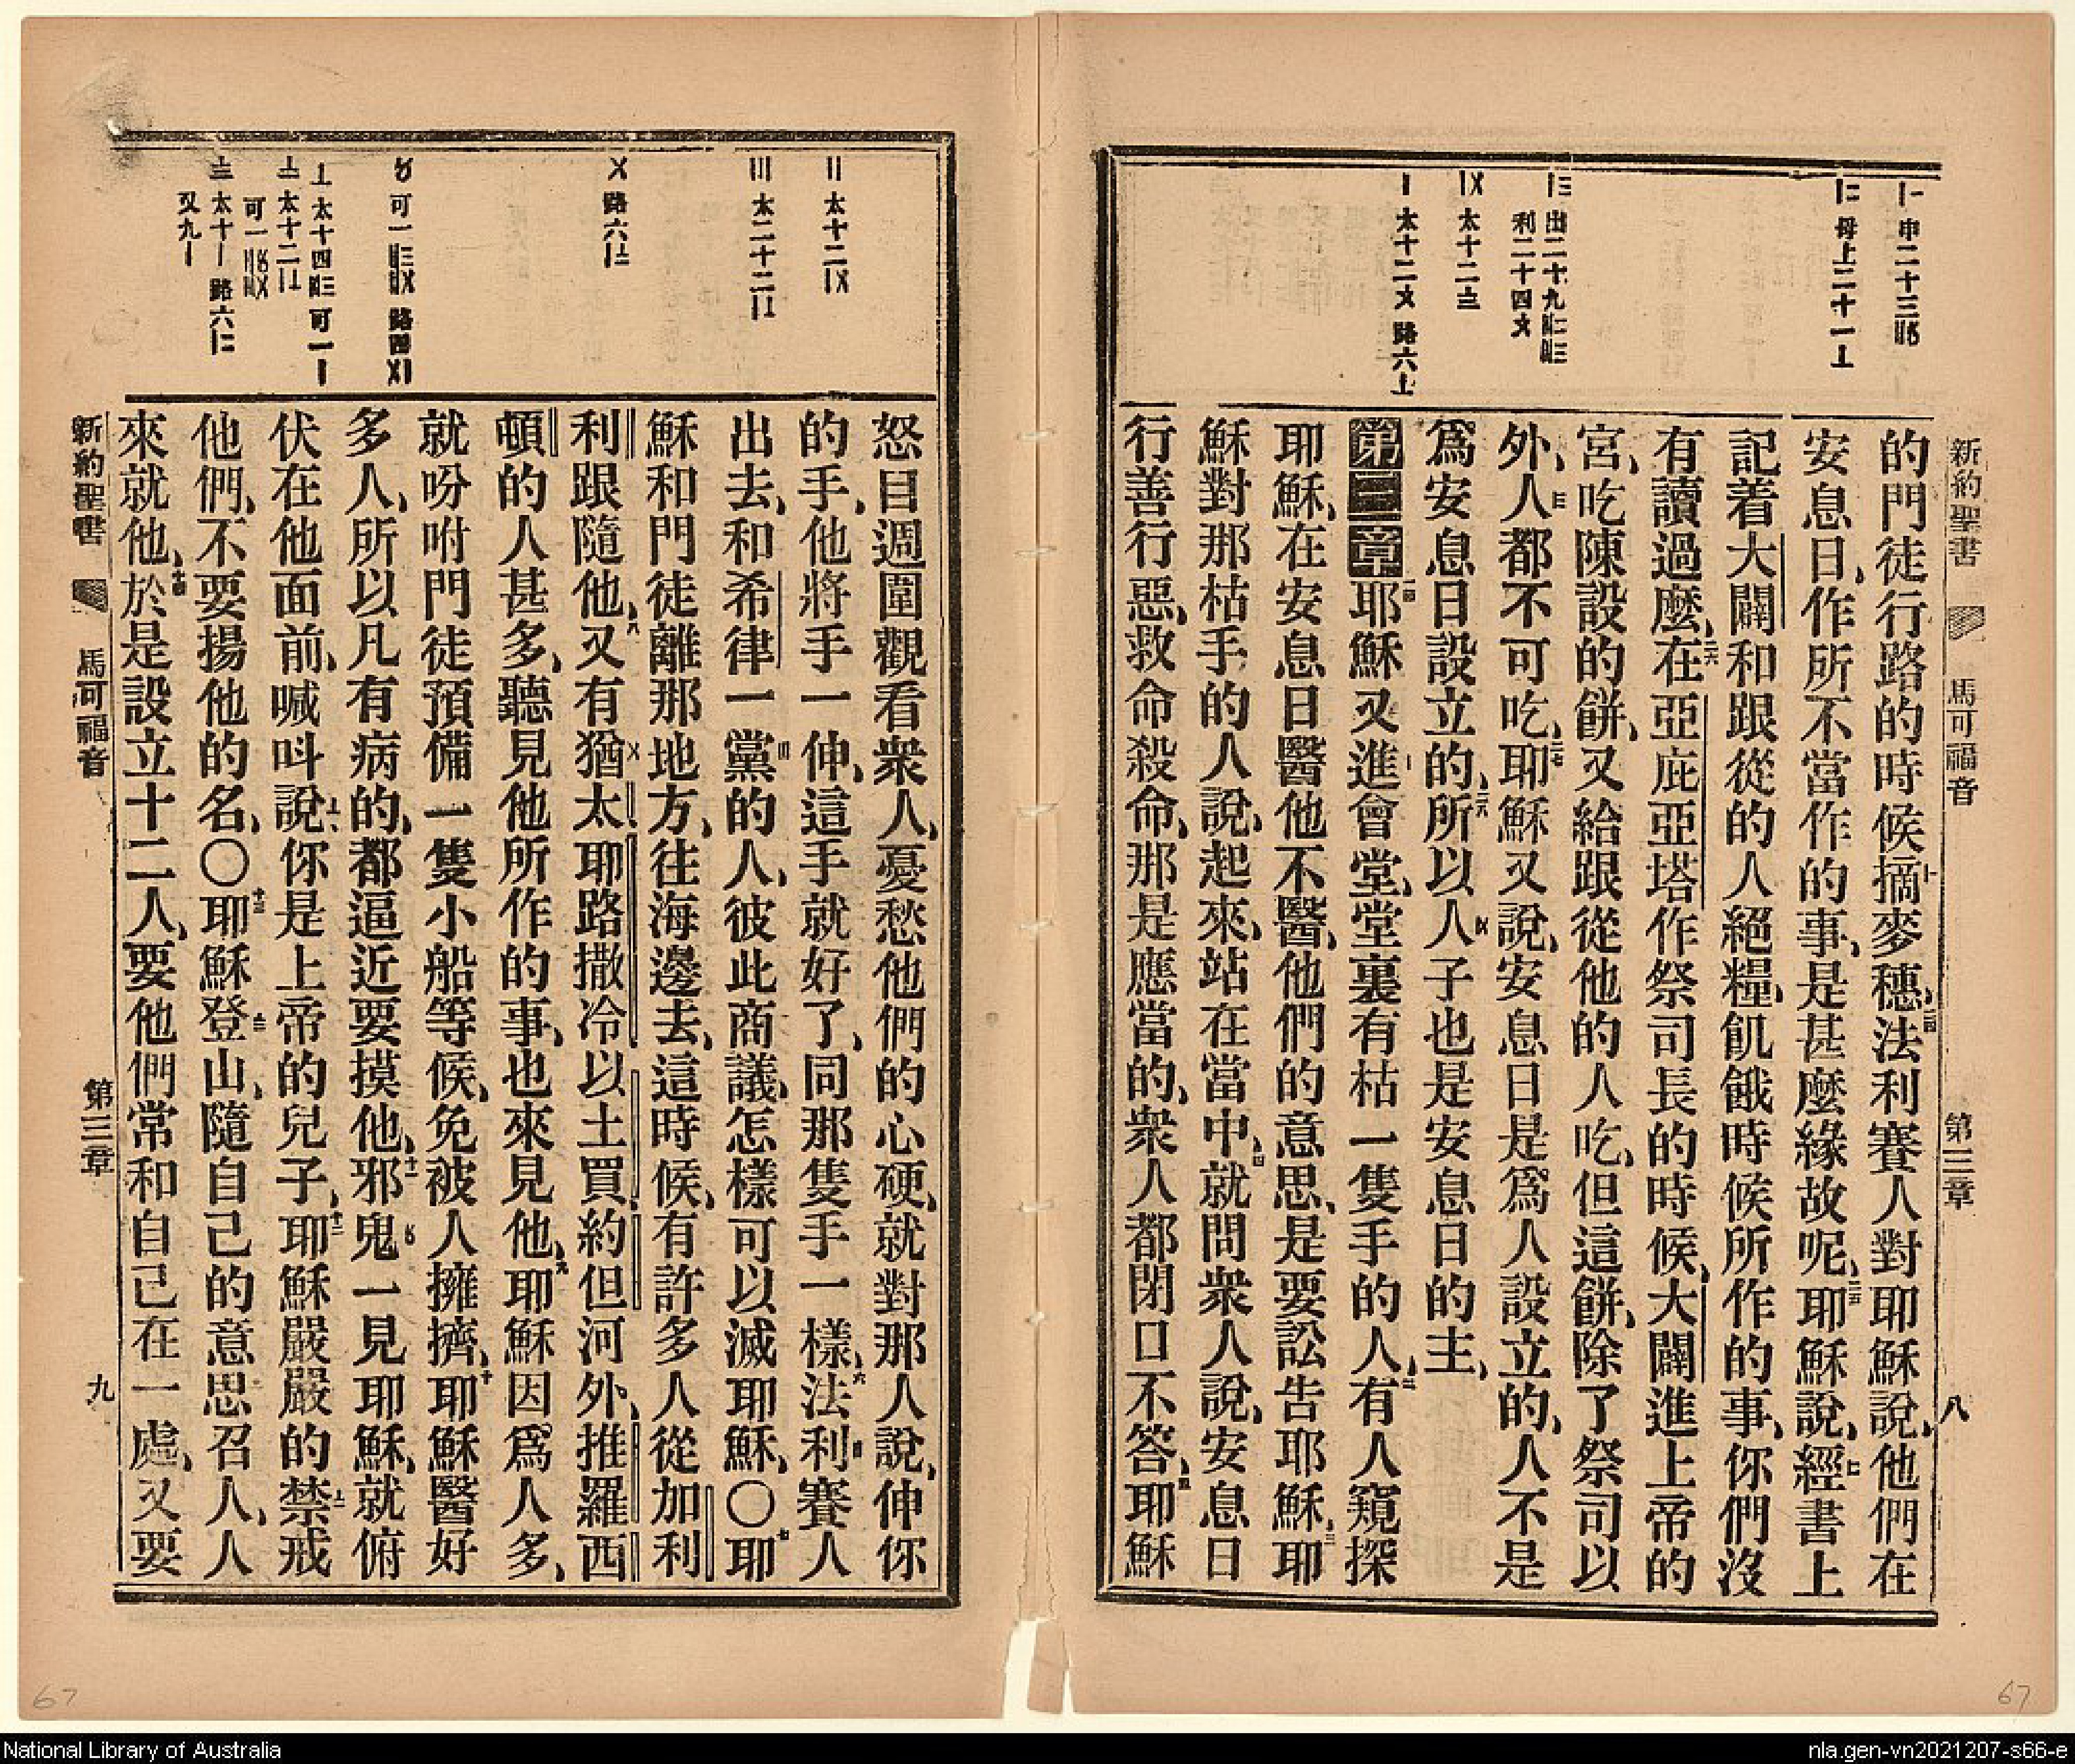 新約聖書 馬可福音 第三章 八
申二十三
母上二十一
出二十九
利二十四
太十二
太十二 路六
的門徒行路的時候摘麥穗、法利賽人對耶穌說、他們在
安息日、作所不當作的事、是甚麼緣故呢、耶穌說、經書上
記着大闢和跟從的人絕糧、飢餓時候所作的事、你們沒
有讀過麼、在亞庇亞塔作祭司長的時候、大闢進上帝的
宮、吃陳設的餅、又給跟從他的人吃、但這餅、除了祭司以
外、人都不可吃、耶穌又說、安息日是爲人設立的、人不是
爲安息日設立的、所以人子也是安息日的主、
第三章耶穌又進會堂、堂裏有枯一隻手的人、有人窺探
耶穌、在安息日醫他不醫、他們的意思、是要訟告耶穌、耶
穌對那枯手的人說、起來、站在當中、就問衆人說、安息日
行善行惡、救命殺命、那是應當的、衆人都閉口不答、耶穌
太十二
太二十二
路六
可一 路四
太十四 可一
太十二
可一
太十 路六
又九
怒目週圍觀看衆人、憂愁他們的心硬、就對那人說、伸你
的手、他將手一伸、這手就好了、同那隻手一樣、法利賽人
出去、和希律一黨的人、彼此商議、怎樣可以滅耶穌、〇耶
穌和門徒離那地方、往海邊去、這時候、有許多人從加利
利跟隨他、又有猶太耶路撒冷以土買、約但河外、推羅西
頓的人甚多、聽見他所作的事、也來見他、耶穌因爲人多、
就吩咐門徒預備一隻小船等候、免被人擁擠、耶穌醫好
多人、所以凡有病的、都逼近要摸他、邪鬼一見耶穌、就俯
伏在他面前、喊呌說、你是上帝的兒子、耶穌嚴嚴的禁戒
他們、不要揚他的名、〇耶穌登山、隨自己的意思召人、人
來就他、於是設立十二人、要他們常和自己在一處、又要
新約聖書 馬可福音 第三章 九
67
67
National Library of Australia
nla.gen-vn2021207-s66-e